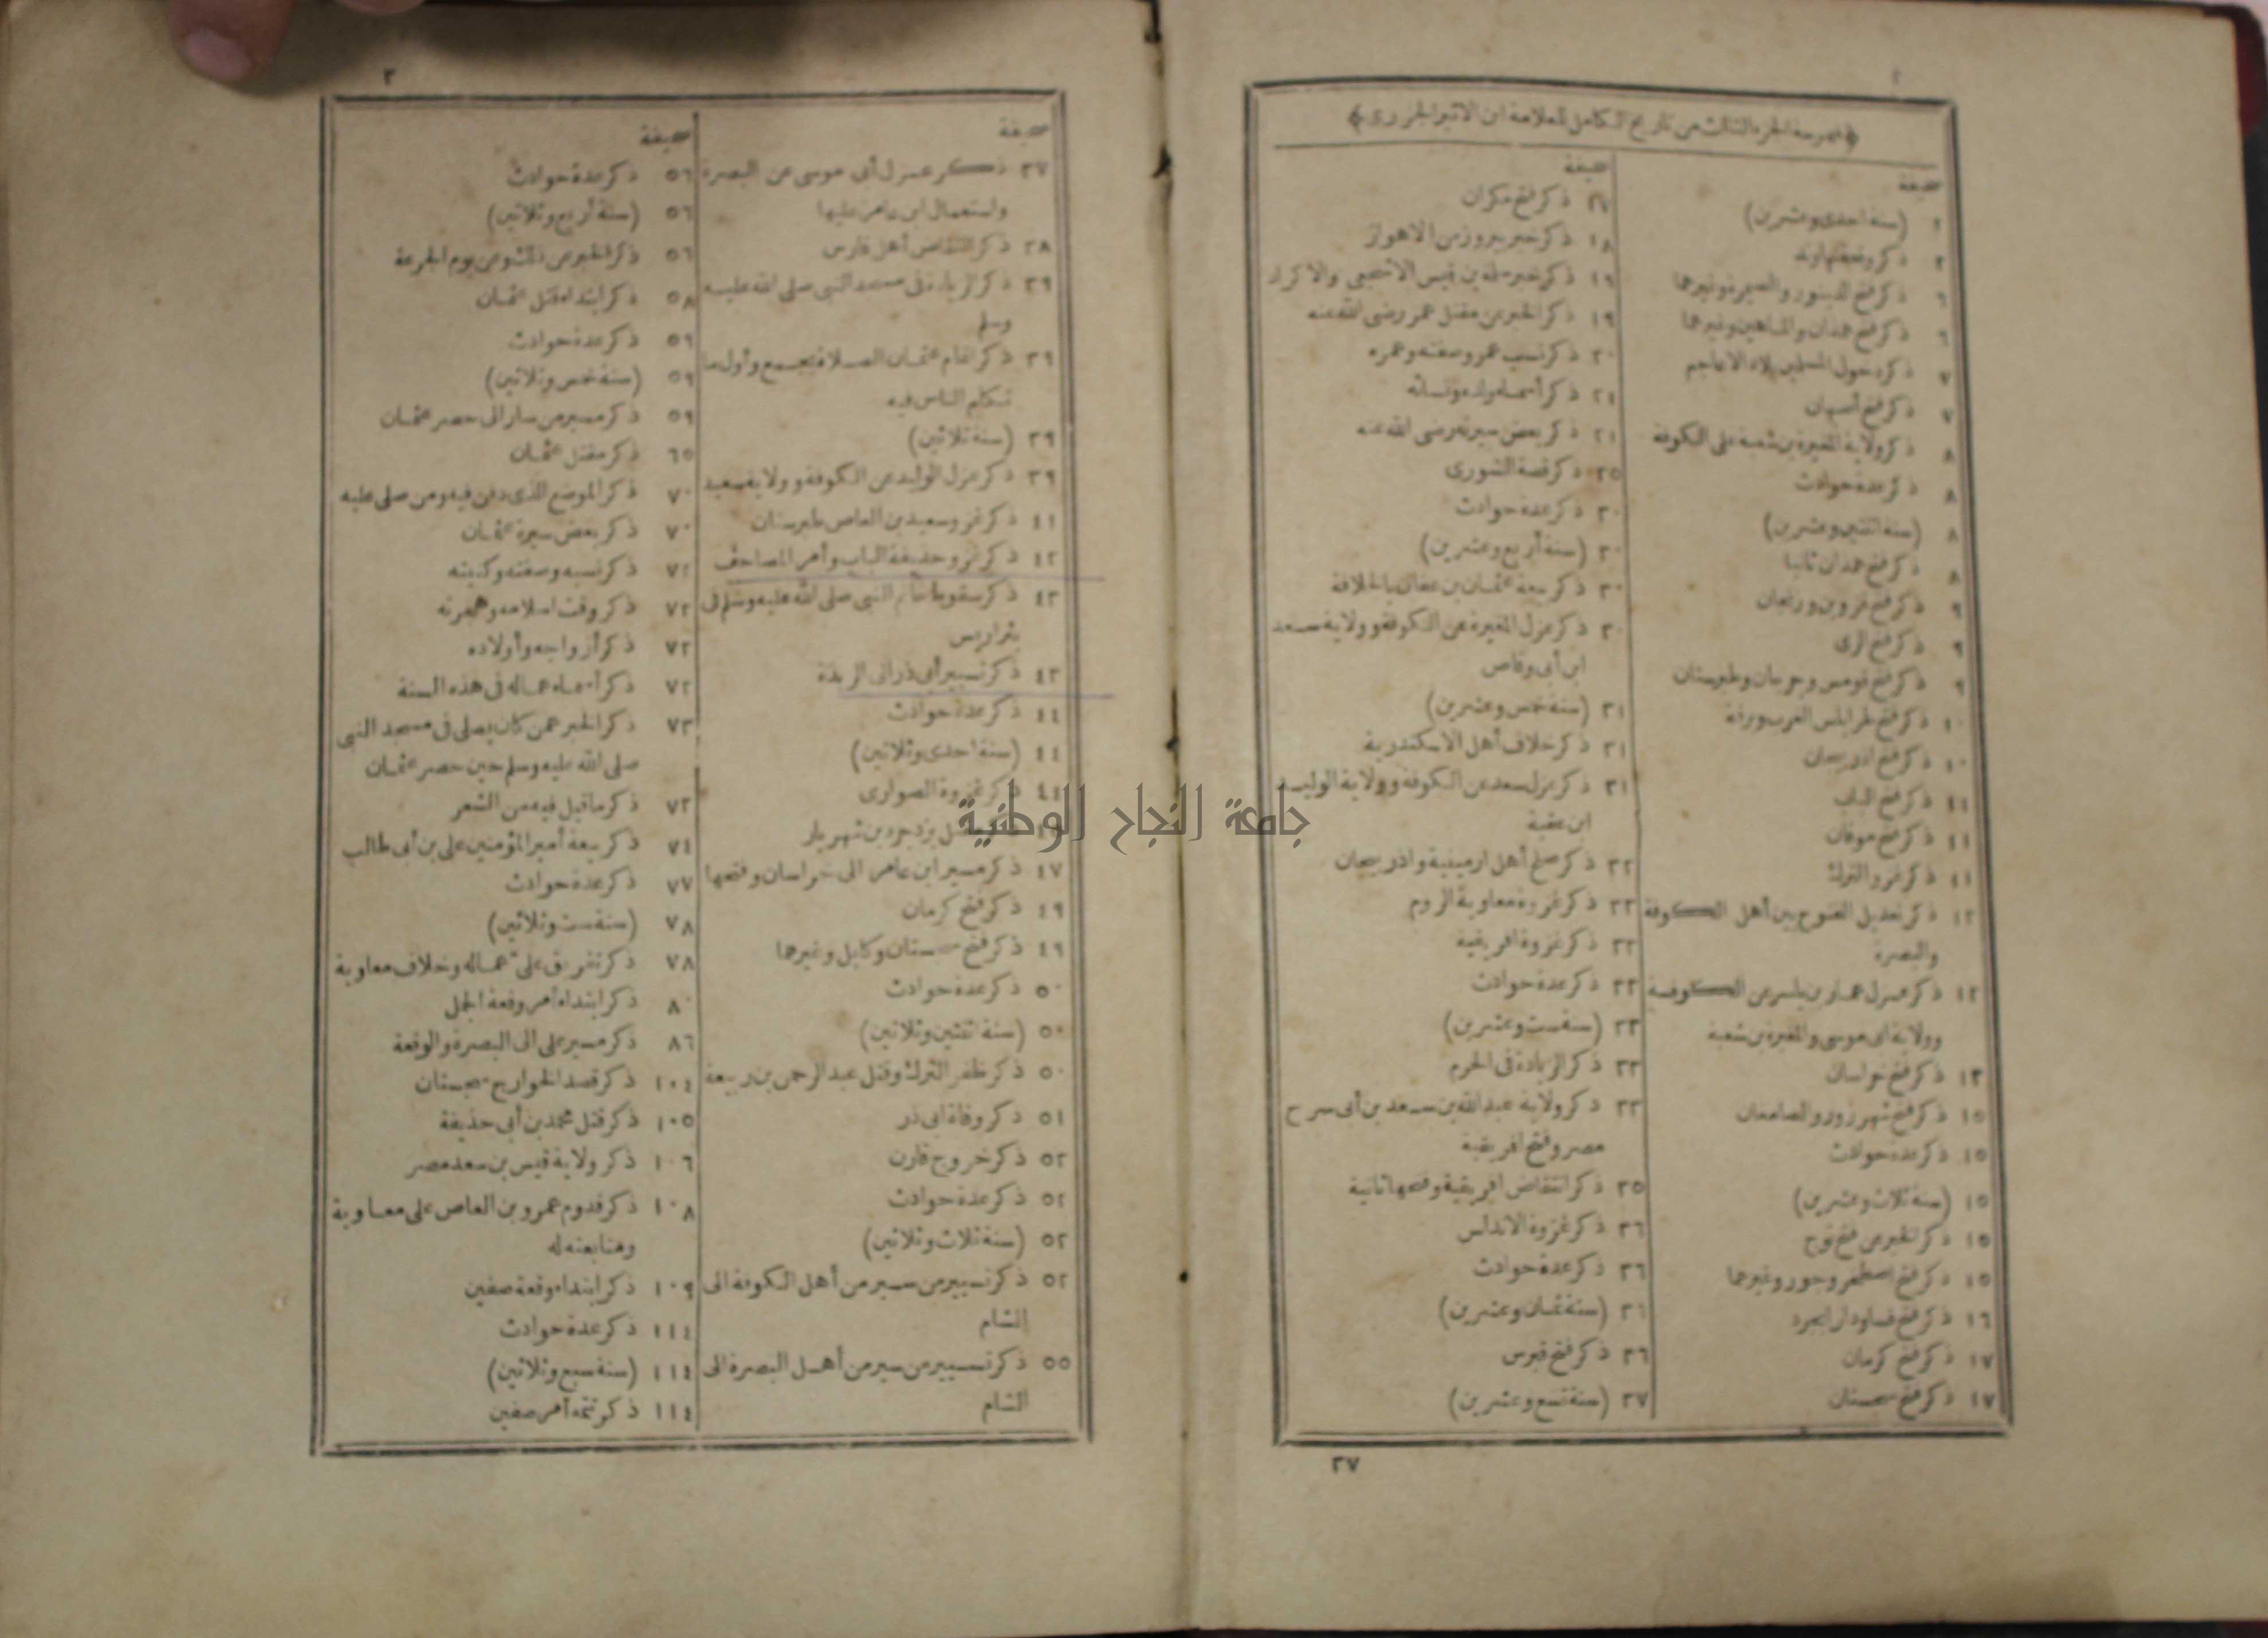 ٢
﴿فهرسة الجزء الثالث من تاريخ الكامل للعلامة ابن الاثير الجزري﴾
صحيفة
(سنة احدى وعشرين)
٢ ذكر وقعة نهاوند
٦ ذكر فتح الدينور والصيمرة وغيرهما
٦ ذكر فتح همذان والماهين وغيرهما
٧ ذكر دخول المسلمين بلاد الاعاجم
٧ ذكر فتح أصبهان
٨ ذكر ولاية المغيرة بن شعبة على الكوفة
٨ ذكر عدة حوادث
٨ (سنة اثنتين وعشرين)
٨ ذكر فتح همذان ثانيا
٩ ذكر فتح قزوين وزنجان
٩ ذكر فتح الرى
٩ ذكر فتح قومس وجرجان وطبرستان
١٠ ذكر فتح طرابلس الغرب وبرقة
١٠ ذكر فتح اذربيجان
١١ ذكر فتح الباب
١١ ذكر فتح موقان
١١ ذكر غزو الترك
١٢ ذكر تعديل الفتوح بين أهل الكوفة
والبصرة
١٢ ذكر عزل عمار بن ياسر عن الكوفة
وولاية ابى موسى والمغيرة بن شعبة
١٣ ذكر فتح خراسان
١٥ ذكر فتح شهرزور والصامغان
١٥ ذكر عدة حوادث
١٥ (سنة ثلاث وعشرين)
١٥ ذكر الخبر عن فتح توج
١٥ ذكر فتح اصطخر وجور وغيرهما
١٦ ذكر فتح فسا ودارابجرد
١٧ ذكر فتح كرمان
١٧ ذكر فتح سجستان
صحيفة
١٧ ذكر فتح مكران
١٨ ذكر خبر بيروذ من الاهواز
١٩ ذكر خبر سلمة بن قيس الاشجعى والاكراد
١٩ ذكر الخبر عن مقتل عمر رضى الله عنه
٢٠ ذكر نسب عمر وصفته وعمره
٢١ ذكر أسماء ولده ونسائه
٢١ ذكر بعض سيرته رضى الله عنه
٢٥ ذكر قصة الشورى
٣٠ ذكر عدة حوادث
٣٠ (سنة أربع وعشرين)
٣٠ ذكر بيعة عثمان بن عفان بالخلافة
٣٠ ذكر عزل المغيرة عن الكوفة وولاية سعد
ابن أبى وقاص
٣١ (سنة خمس وعشرين)
٣١ ذكر خلاف أهل الاسكندرية
٣١ ذكر عزل سعد عن الكوفة وولاية الوليد
ابن عقبة
٣٢ ذكر صلح أهل ارمينية واذربيجان
٣٣ ذكر غزوة معاوية الروم
٣٣ ذكر غزوة افريقية
٣٣ ذكر عدة حوادث
٣٣ (سنة ست وعشرين)
٣٣ ذكر الزيادة فى الحرم
٣٣ ذكر ولاية عبد الله بن سعد بن أبى سرح
مصر وفتح افريقية
٣٥ ذكر انتقاض افريقية وفتحها ثانية
٣٦ ذكر غزوة الاندلس
٣٦ ذكر عدة حوادث
٣٦ (سنة ثمان وعشرين)
٣٦ ذكر فتح قبرس
٣٧ (سنة تسع وعشرين)
٣٧
٣
صحيفة
٣٧ ذكر عزل أبى موسى عن البصرة
واستعمال ابن عامر عليها
٣٨ ذكر انتقاض أهل فارس
٣٩ ذكر الزيادة فى مسجد النبى صلى الله عليه
وسلم
٣٩ ذكر اتمام عثمان الصلاة بجمع وأول ما
تكلم الناس فيه
٣٩ (سنة ثلاثين)
٣٩ ذكر عزل الوليد عن الكوفة وولاية سعيد
٤١ ذكر غزو سعيد بن العاص طبرستان
٤٢ ذكر غزو حذيفة الباب وأمر المصاحف
٤٣ ذكر سقوط خاتم النبى صلى الله عليه وسلم فى
بئر اريس
٤٣ ذكر تسيير أبى ذر الى الربذة
٤٤ ذكر عدة حوادث
٤٤ (سنة احدى وثلاثين)
٤٤ ذكر غزوة الصوارى
ذكر مقتل يزدجرد بن شهريار
٤٧ ذكر مسير ابن عامر الى خراسان وفتحها
٤٩ ذكر فتح كرمان
٤٩ ذكر فتح سجستان وكابل وغيرهما
٥٠ ذكر عدة حوادث
٥٠ (سنة اثنتين وثلاثين)
٥٠ ذكر ظفر الترك وقتل عبد الرحمن بن ربيعة
٥١ ذكر وفاة ابى ذر
٥٢ ذكر خروج قارن
٥٢ ذكر عدة حوادث
٥٢ (سنة ثلاث وثلاثين)
٥٢ ذكر تسيير من سير من أهل الكوفة الى
الشام
٥٥ ذكر تسيير من سير من أهل البصرة الى
الشام
صحيفة
٥٦ ذكر عدة حوادث
٥٦ (سنة أربع وثلاثين)
٥٦ ذكر الخبر عن ذلك وعن يوم الجرعة
٥٨ ذكر ابتداء قتل عثمان
٥٩ ذكر عدة حوادث
٥٩ (سنة خمس وثلاثين)
٥٩ ذكر مسير من سار الى حصر عثمان
٦٥ ذكر مقتل عثمان
٧٠ ذكر الموضع الذى دفن فيه ومن صلى عليه
٧٠ ذكر بعض سيرة عثمان
٧٢ ذكر نسبه وصفته وكنيته
٧٢ ذكر وقت اسلامه وهجرته
٧٢ ذكر أزواجه وأولاده
٧٢ ذكر أسماء عماله فى هذه السنة
٧٣ ذكر الخبر عمن كان يصلى فى مسجد النبى
صلى الله عليه وسلم حين حصر عثمان
٧٣ ذكر ما قيل فيه من الشعر
٧٤ ذكر بيعة أمير المؤمنين على بن أبى طالب
٧٧ ذكر عدة حوادث
٧٨ (سنة ست وثلاثين)
٧٨ ذكر تفريق على عماله وخلاف معاوية
٨٠ ذكر ابتداء أمر وقعة الجمل
٨٦ ذكر مسير على الى البصرة والوقعة
١٠٤ ذكر قصد الخوارج سجستان
١٠٥ ذكر قتل محمد بن أبى حذيفة
١٠٦ ذكر ولاية قيس بن سعد مصر
١٠٨ ذكر قدوم عمرو بن العاص على معاوية
ومتابعته له
١٠٩ ذكر ابتداء وقعة صفين
١١٤ ذكر عدة حوادث
١١٤ (سنة سبع وثلاثين)
١١٤ ذكر تتمة أمر صفين
جامعة النجاح الوطنية